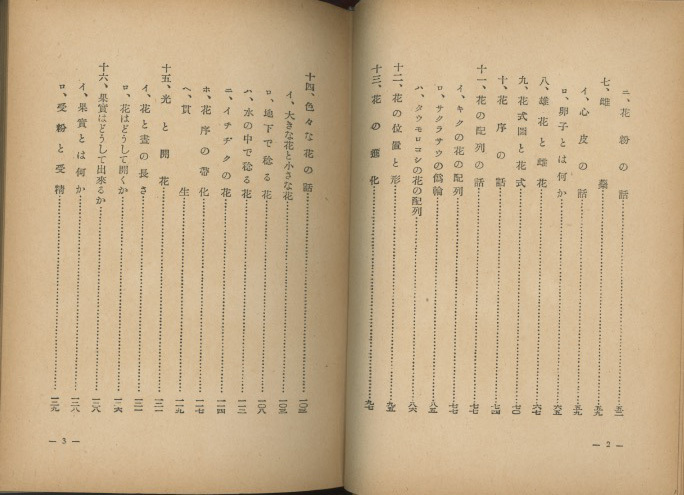 ニ、花粉の話…………五二
七、雌蕋…………五九
イ、心皮の話…………五九
ロ、卵子とは何か…………六五
八、雄花と雌花…………六七
九、花式圖と花式…………七〇
十、花序の話…………七四
十一、花の配列の話…………七七
イ、キクの花の配列…………七七
ロ、サクラサウの僞輪…………八五
ハ、タウモロコシの花の配列…………八六
十二、花の位置と形…………九五
十三、花の進化…………九七
— 2 —
十四、色々な花の話…………一〇三
イ、大きな花と小さな花…………一〇三
ロ、地下で稔る花…………一〇八
ハ、水の中で稔る花…………一一三
ニ、イチヂクの花…………一一四
ホ、花序の帶化…………一一七
ヘ、貫生…………一一九
十五、光と開花…………一二一
イ、花と晝の長さ…………一二一
ロ、花はどうして開くか…………一二六
十六、果實はどうして出來るか…………一二八
イ、果實とは何か…………一二八
ロ、受粉と受精…………一二九
— 3 —